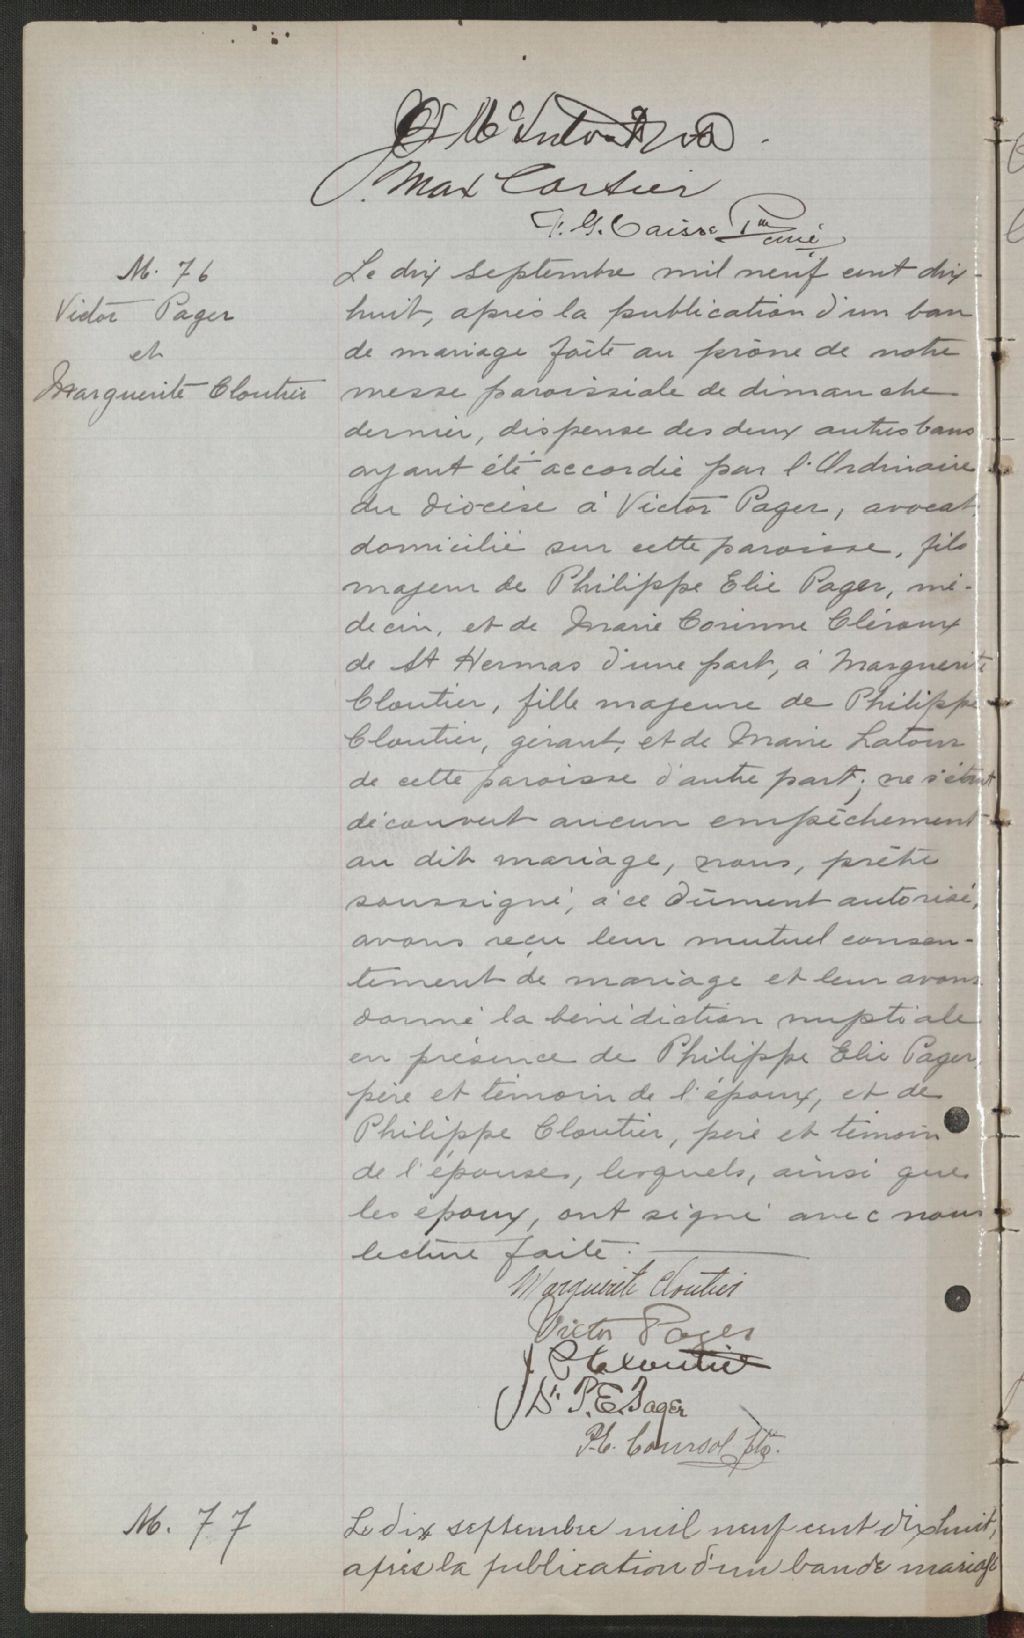 Max Cartier
F. G. Caisse Ptre curé
M. 76
Victor Pager
et
Marguerite Cloutier
Le dix septembre mil neuf cent dix-
huit, après la publication d'un ban
de mariage faite au prône de notre
messe paroissiale de dimanche
dernier, dispense des deux autres bans
ayant été accordée par l'Ordinaire
du diocèse à Victor Pager, avocat,
domicilié sur cette paroisse, fils
majeur de Philippe Elie Pager, mé-
decin, et de Marie Corinne Cléroux
de St Hermas d'une part, à Marguerite
Cloutier, fille majeure de Philippe
Cloutier, gérant, et de Marie Latour
de cette paroisse d'autre part; ne s'étant
découvert aucun empêchement
au dit mariage, nous, prêtre
soussigné, à ce dûment autorisé,
avons reçu leur mutuel consen-
tement de mariage et leur avons
donné la bénédiction nuptiale
en présence de Philippe Elie Pager,
père et témoin de l'époux, et de
Philippe Cloutier, père et témoin
de l'épouse, lesquels, ainsi que
les époux, ont signé avec nous
lecture faite.
Marguerite Cloutier
Victor Pager
P. Cloutier
Dr. P. E. Pager
P.E. Coursol ptre.
M. 77
Le dix septembre mil neuf cent dix huit,
après la publication d'un ban de mariage